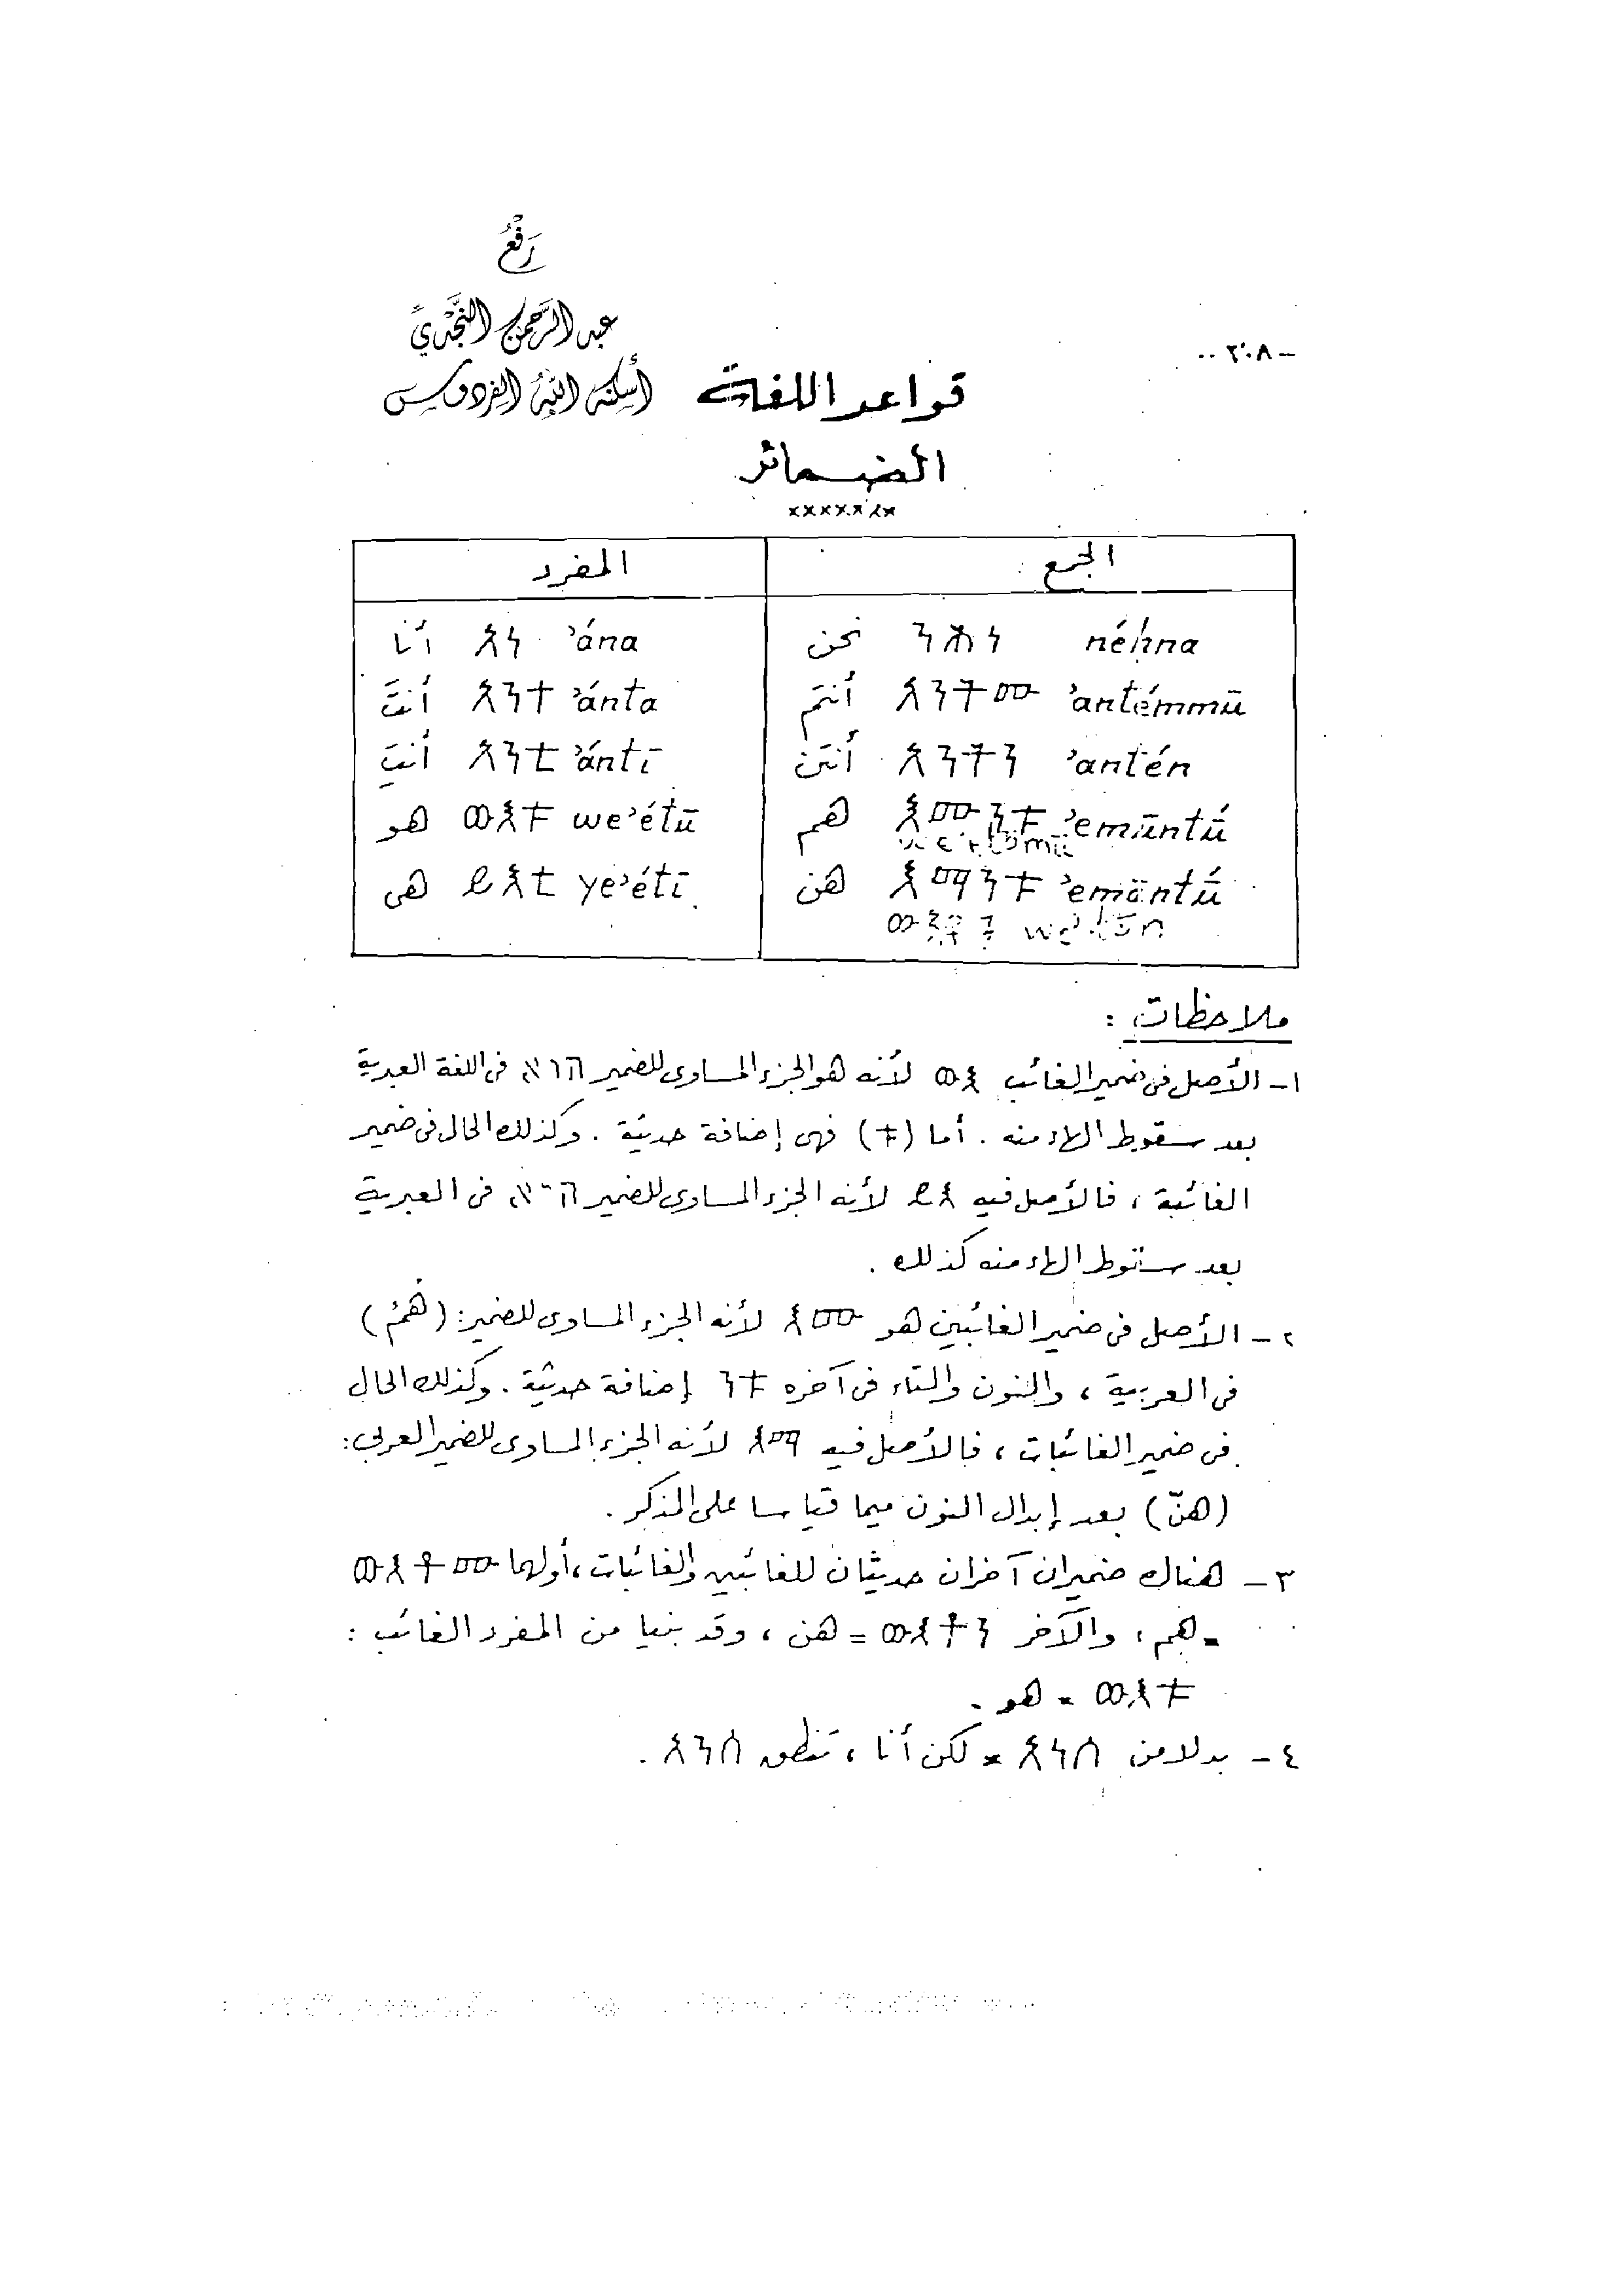 رَفْعُ
عبد الرَّحمن النَّجْدي
أسكنه اللهُ الفردوس
- ٢٠٨ -
قواعد اللغة
الضمائر
×××××××
المفرد الجمع
أنا አነ ʾána نحن ንሕነ néḥna
أنتَ አንተ ʾánta أنتم አንትሙ ʾantémmū
أنتِ አንቲ ʾántī أنتن አንትን ʾantén
هو ውእቱ weʾétū هم እሙንቱ ʾemūntū́
weʾtōmū
هى ይእቲ yeʾétī هن እማንቱ ʾemāntū́
ውእቶን weʾtōn
ملاحظات :
١- الأصل فى ضمير الغائب ውእ لأنه هو الجزء المساوى للضمير הוא فى اللغة العبرية
بعد سقوط الهاء منه . أما (ቱ) فهى إضافة حديثة . وكذلك الحال فى ضمير
الغائبة ، فالأصل فيه ይእ لأنه الجزء المساوى للضمير היא فى العبرية
بعد سقوط الهاء منه كذلك .
٢- الأصل فى ضمير الغائبين هو እሙ لأنه الجزء المساوى للضمير: (هُمُ)
فى العربية ، والنون والتاء فى آخره ንቱ إضافة حديثة . وكذلك الحال
فى ضمير الغائبات ، فالأصل فيه እማ لأنه الجزء المساوى للضمير العربى:
(هنّ) بعد إبدال النون ميما قياسا على المذكر .
٣- هناك ضميران آخران حديثان للغائبين والغائبات، أولهما ውእቶሙ
= هم ، والآخر ውእቶን = هن ، وقد بنيا من المفرد الغائب :
ውእቱ = هو .
٤- بدلا من አነሰ = لكن أنا ، تنطق አንሰ .